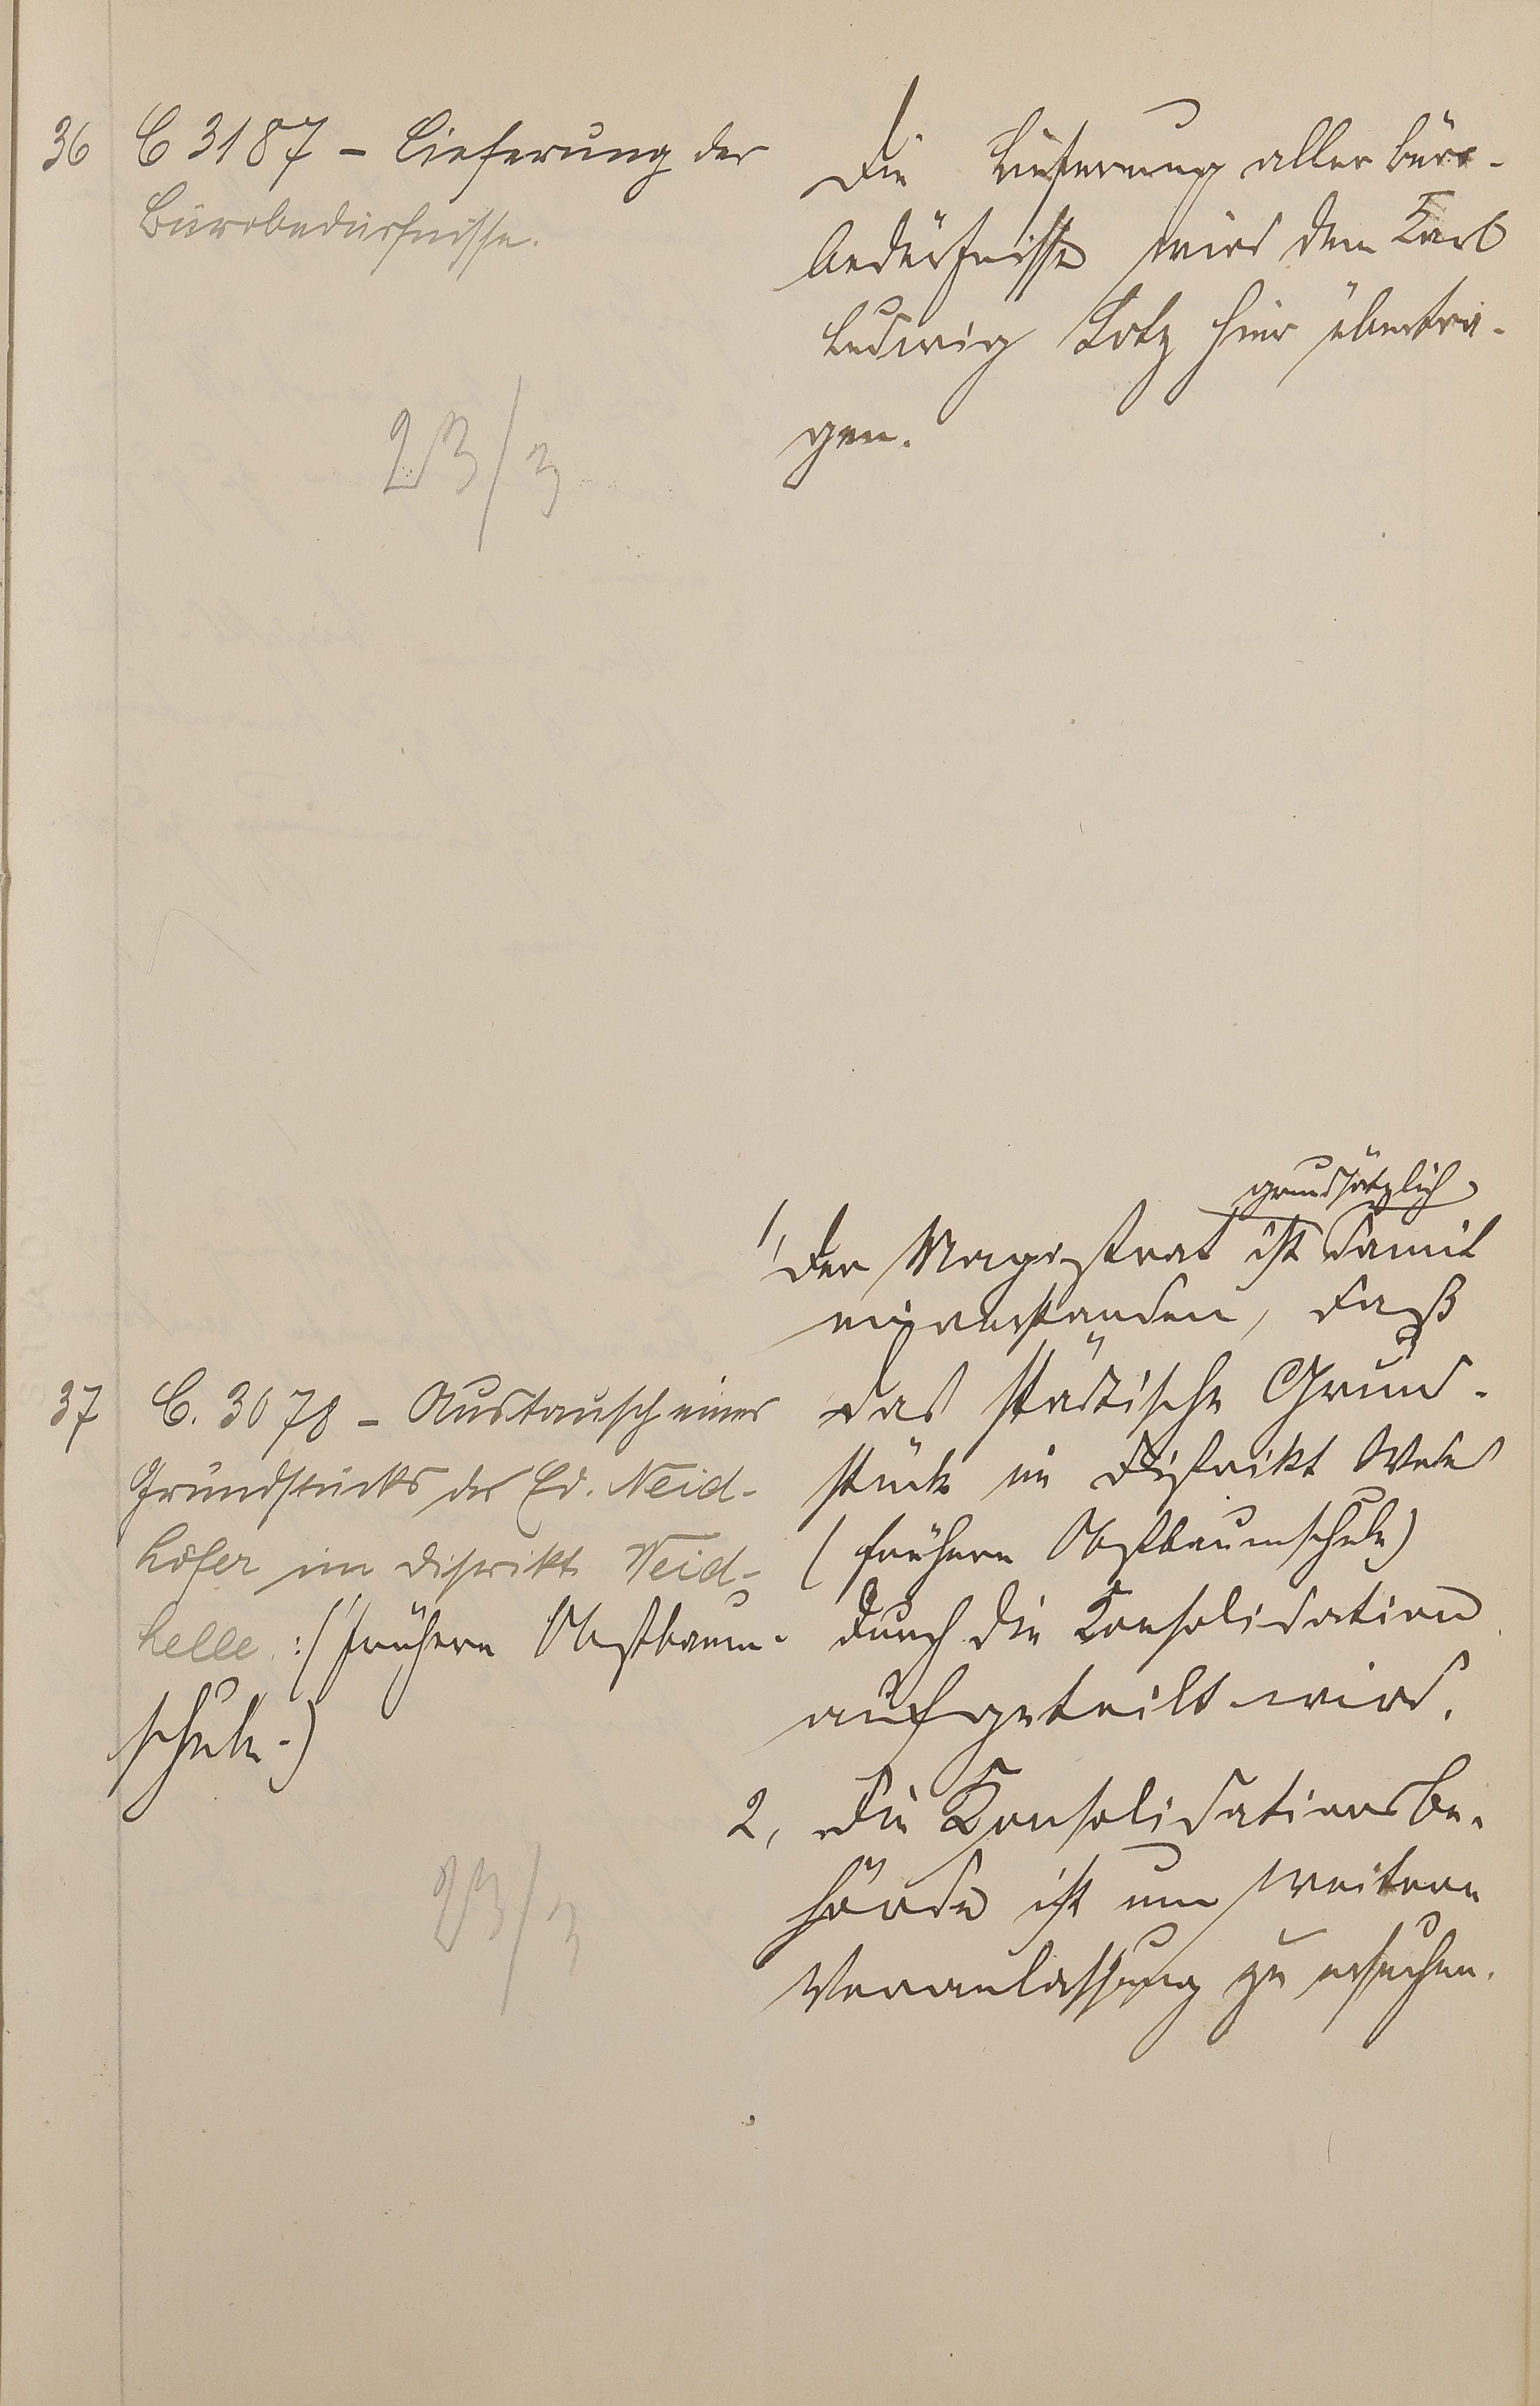 36
C 3187 - Lieferung der
Bürobedürfnisse.
23/3
Die Lieferung aller Büro-
bedürfnisse wird dem Karl
Ludwig Lotz hier übertra-
gen.
37
C. 3078 - Austausch eines
Grundstücks des Ed. Neid-
höfer im Distrikt Neid-
helle :(frühere Obstbaum-
schule.)
23/3
grundsätzlich
1, Der Magistrat ist damit
einverstanden, daß
das städtische Grund-
stück im Distrikt
(frühere Obstbaumschule)
durch die Konsolidation
aufgeteilt wird.
2, Die Konsolidationsbe-
hörde ist um weitere
Veranlassung zu ersuchen.